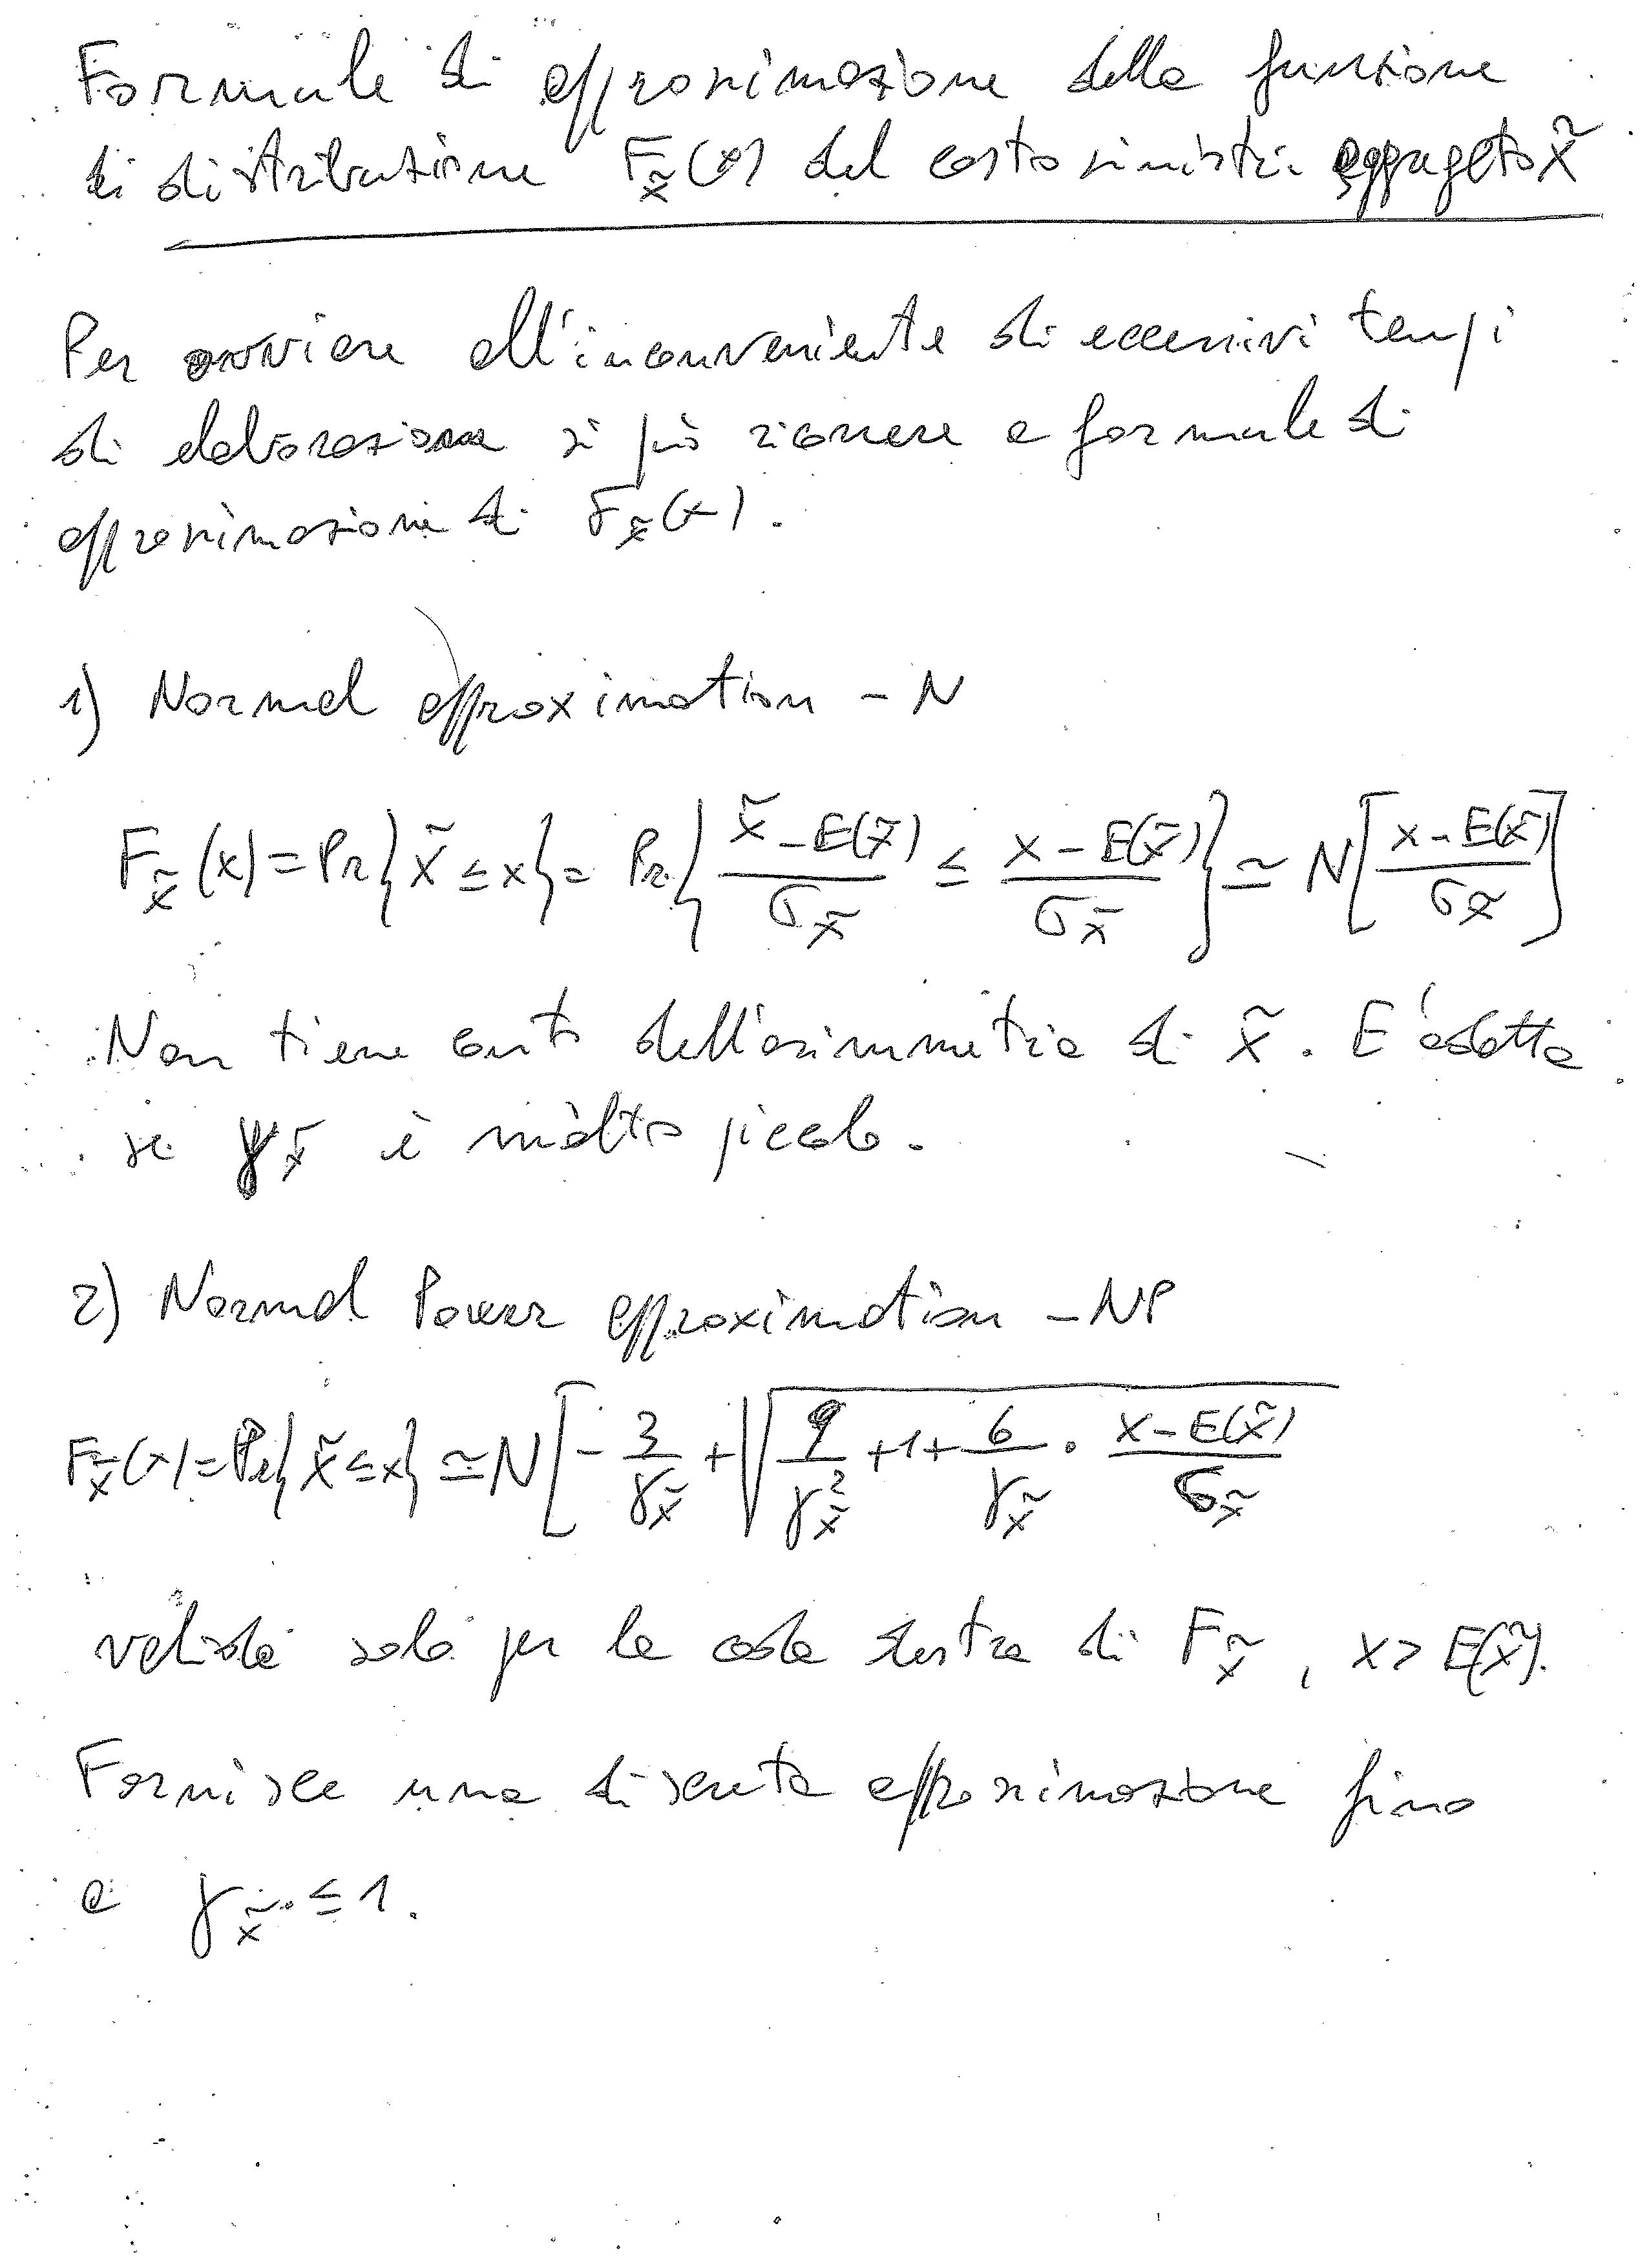 Formule di approssimazione della funzione
di distribuzione F_X̃(x) del costo sinistri aggregato X̃
Per ovviare all'inconveniente di eccessivi tempi
di elaborazione si può ricorrere a formule di
approssimazione di F_X̃(x).
1) Normal approximation - N
F_X̃(x) = Pr{X̃ ≤ x} = Pr{(X̃ - E(X̃))/σ_X̃ ≤ (x - E(X̃))/σ_X̃} ≃ N[(x - E(X̃))/σ_X̃]
Non tiene conto dell'asimmetria di X̃. E' adatta
se γ_X̃ è molto piccolo.
2) Normal Power approximation - NP
F_X̃(x) = Pr{X̃ ≤ x} ≃ N[-3/γ_X̃ + √(9/γ²_X̃ + 1 + 6/γ_X̃ · (x - E(X̃))/σ_X̃)
valida solo per la coda destra di F_X̃, x > E(X̃).
Fornisce una discreta approssimazione fino
a γ_X̃ ≤ 1.